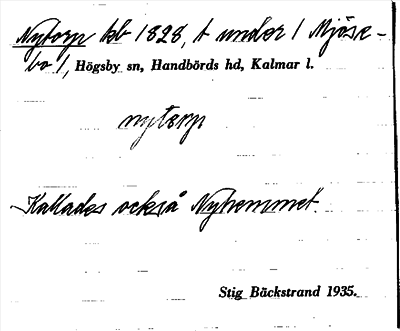 Nytorp kb 1828, t under 1 Mjöse-
bo 1, Högsby sn, Handbörds hd, Kalmar l.
nytorp
Kallades också Nyhemmet.
Stig Bäckstrand 1935.